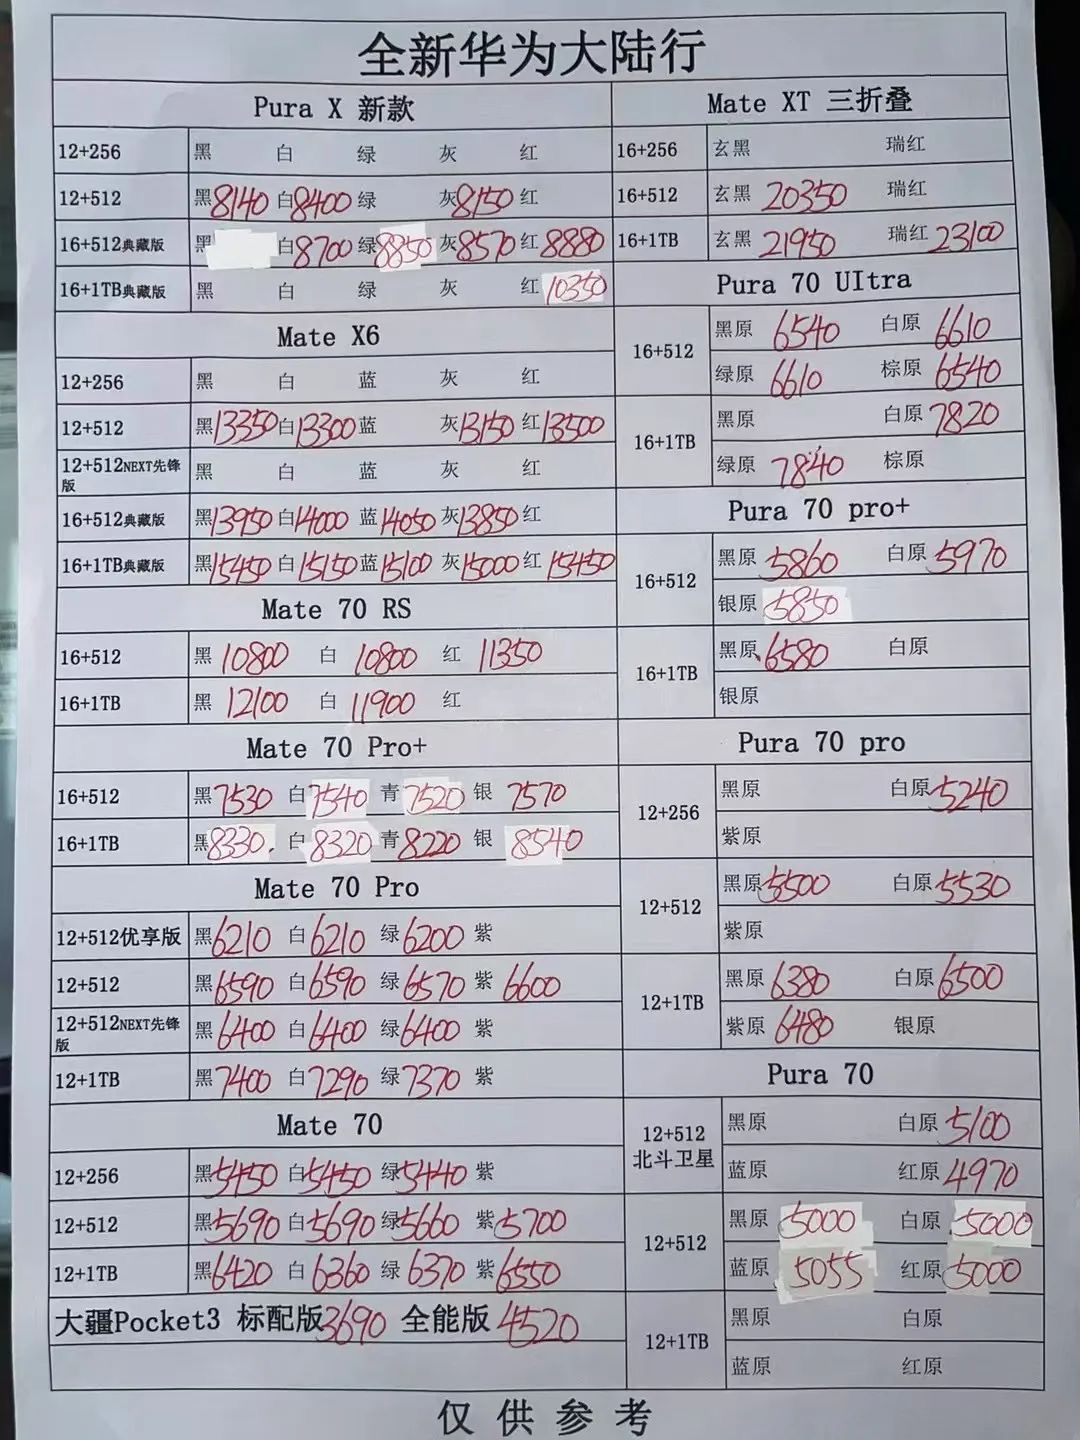 全新华为大陆行
Pura X 新款
12+256 黑 白 绿 灰 红
12+512 黑8140 白8400 绿 灰8150 红
16+512典藏版 黑 白8700 绿8850 灰8570 红8880
16+1TB典藏版 黑 白 绿 灰 红10350
Mate X6
12+256 黑 白 蓝 灰 红
12+512 黑13350 白13300 蓝 灰13150 红13500
12+512NEXT先锋版 黑 白 蓝 灰 红
16+512典藏版 黑13950 白14000 蓝14050 灰13850 红
16+1TB典藏版 黑15450 白15150 蓝15100 灰15000 红15450
Mate 70 RS
16+512 黑 10800 白 10800 红 11350
16+1TB 黑 12100 白 11900 红
Mate 70 Pro+
16+512 黑7530 白7540 青7520 银 7570
16+1TB 黑8330. 白8320 青8220 银 8540
Mate 70 Pro
12+512优享版 黑6210 白6210 绿6200 紫
12+512 黑6590 白6590 绿6570 紫 6600
12+512NEXT先锋版 黑6400 白6400 绿6400 紫
12+1TB 黑7400 白7290 绿7370 紫
Mate 70
12+256 黑5450 白5450 绿5440 紫
12+512 黑5690 白5690 绿5660 紫5700
12+1TB 黑6420 白6360 绿6370 紫6550
大疆Pocket3 标配版3690 全能版 4520
Mate XT 三折叠
16+256 玄黑 瑞红
16+512 玄黑 20350 瑞红
16+1TB 玄黑 21950 瑞红23100
Pura 70 UItra
16+512 黑原 6540 白原 6610
绿原 6610 棕原 6540
16+1TB 黑原 白原7820
绿原 7840 棕原
Pura 70 pro+
16+512 黑原 5860 白原5970
银原5850
16+1TB 黑原6580 白原
银原
Pura 70 pro
12+256 黑原 白原5240
紫原
12+512 黑原5500 白原5530
紫原
12+1TB 黑原 6380 白原6500
紫原 6480 银原
Pura 70
12+512
北斗卫星 黑原 白原 5100
蓝原 红原4970
12+512 黑原 5000 白原 5000
蓝原 5055 红原5000
12+1TB 黑原 白原
蓝原 红原
仅供参考